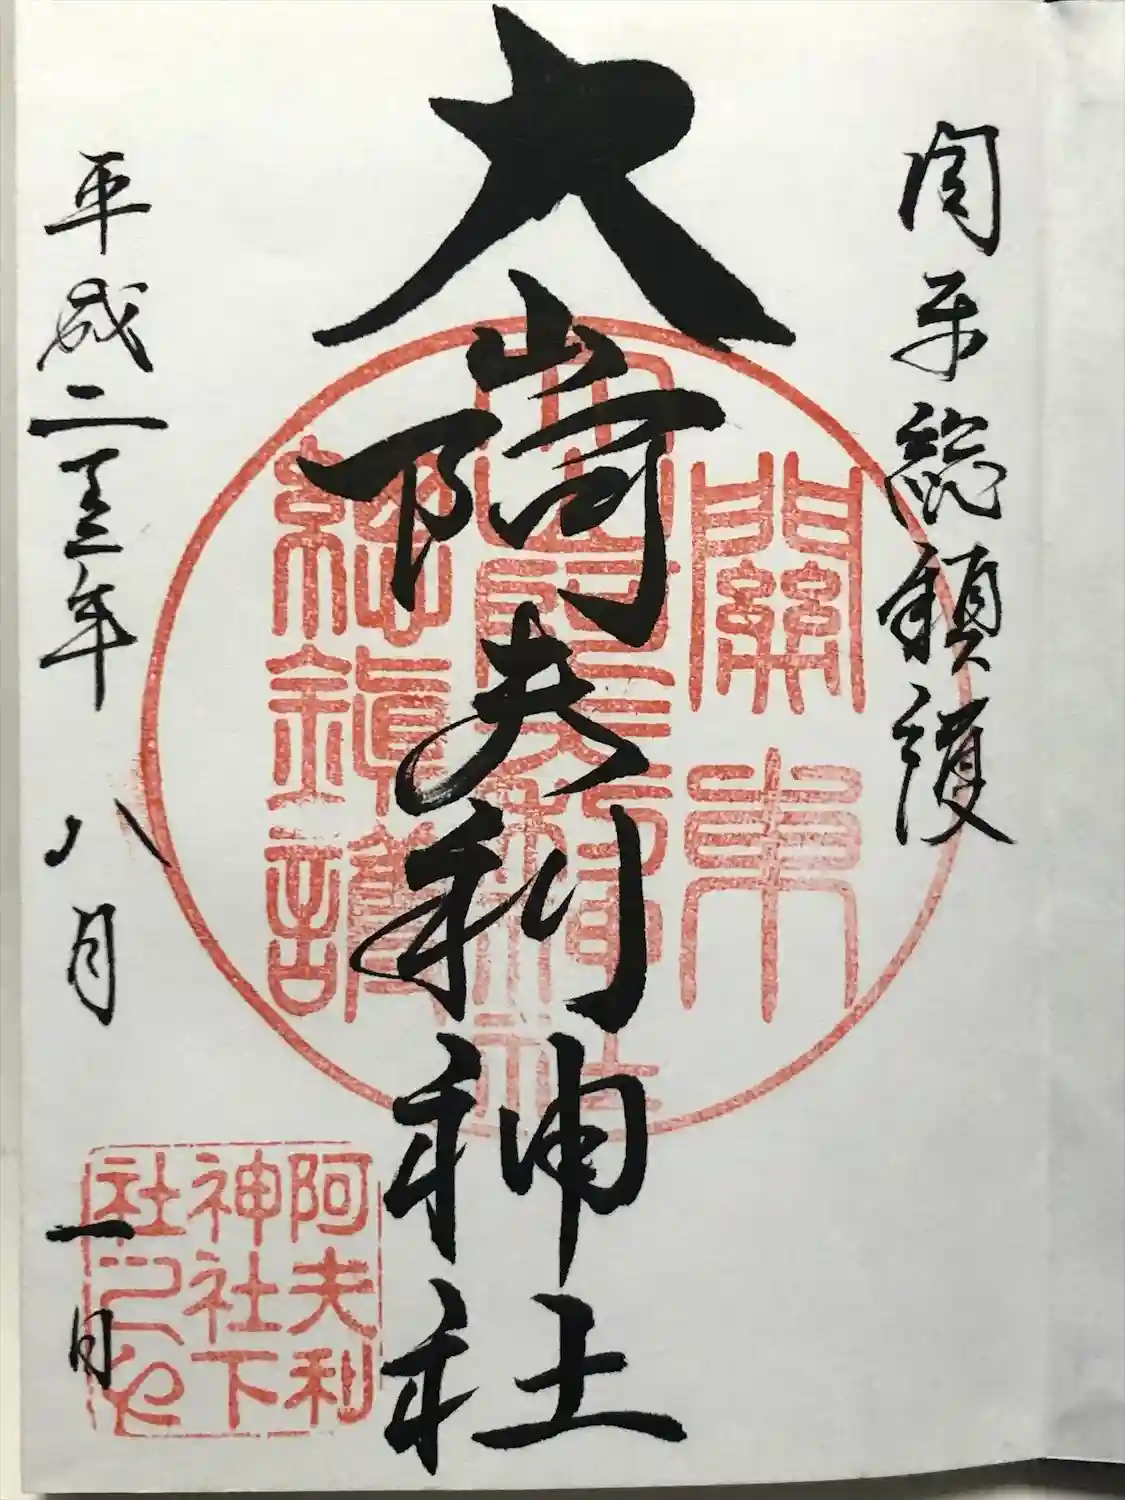 関東総鎮護
大山阿夫利神社
平成二十三年八月一日
關東
大山阿夫利神社
總鎮護
阿夫利
神社下
社之印